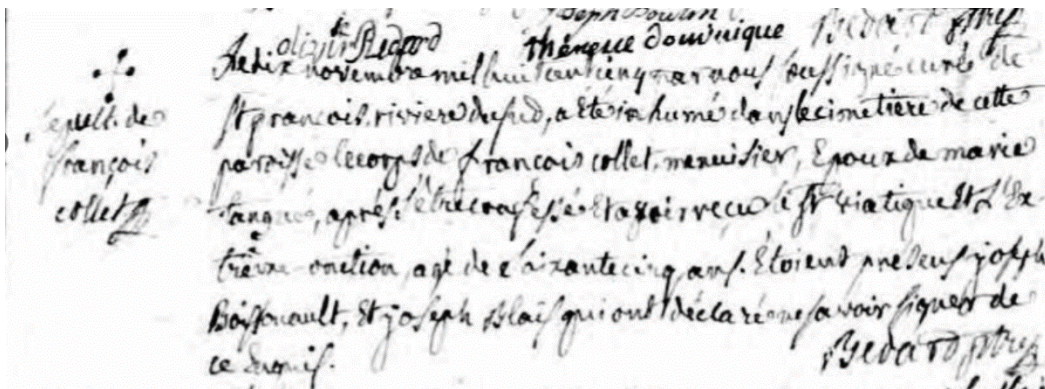 joseph Boulin
olivier Bedard thérèse dominique Bedard ptre
Le dix novembre mil huit cent cinq par nous soussigné curé de
Sepult. de
st francois, riviere du sud, a été inhumé dans le cimetière de cette
françois
paroisse le corps de francois collet, menuisier, Epoux de marie
collet
tangué, après s'être confessé Et avoir reçu le st viatique Et l'Ex-
trême-onction, agé de soixante cinq ans. Etoient presens joseph
Boissonault, Et joseph Blais qui ont déclaré ne savoir signer de
ce Enquis.
Bedard ptre